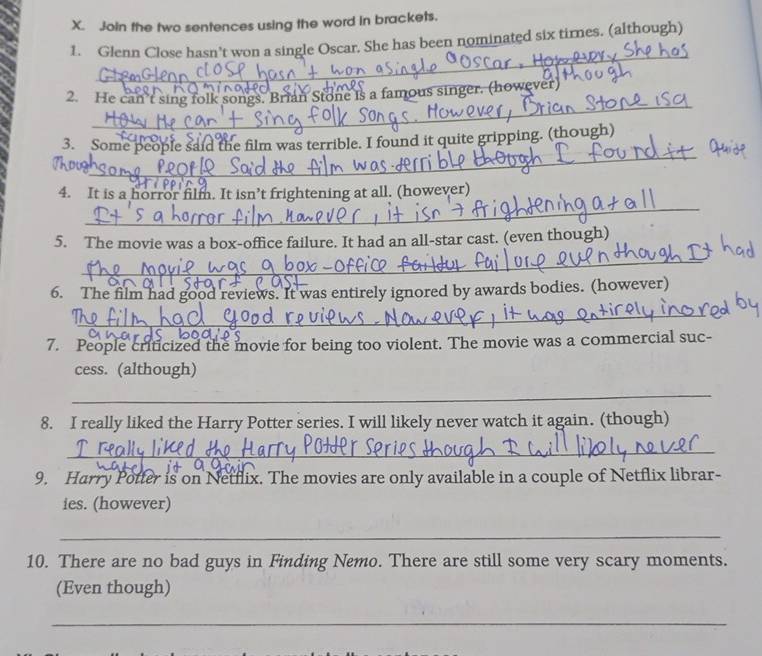 X. Join the two sentences using the word in brackets.
1. Glenn Close hasn't won a single Oscar. She has been nominated six times. (although)
Glenn close hasn't won a single Oscar. She has
although
been nominated six times
2. He can't sing folk songs. Brian Stone is a famous singer. (however)
He can't sing folk songs. However, Brian Stone is a
famous singer
3. Some people said the film was terrible. I found it quite gripping. (though)
Though some people said the film was terrible I found it quite
gripping
4. It is a horror film. It isn't frightening at all. (however)
It's a horror film. However, it isn't frightening at all
5. The movie was a box-office failure. It had an all-star cast. (even though)
the movie was a box-office failure even though It had
an all start cast
6. The film had good reviews. It was entirely ignored by awards bodies. (however)
The film had good reviews. However, it was entirely inored by
awards bodies
7. People criticized the movie for being too violent. The movie was a commercial suc-
cess. (although)
8. I really liked the Harry Potter series. I will likely never watch it again. (though)
I really liked the Harry Potter series though I will likely never
watch it again
9. Harry Potter is on Netflix. The movies are only available in a couple of Netflix librar-
ies. (however)
10. There are no bad guys in Finding Nemo. There are still some very scary moments.
(Even though)